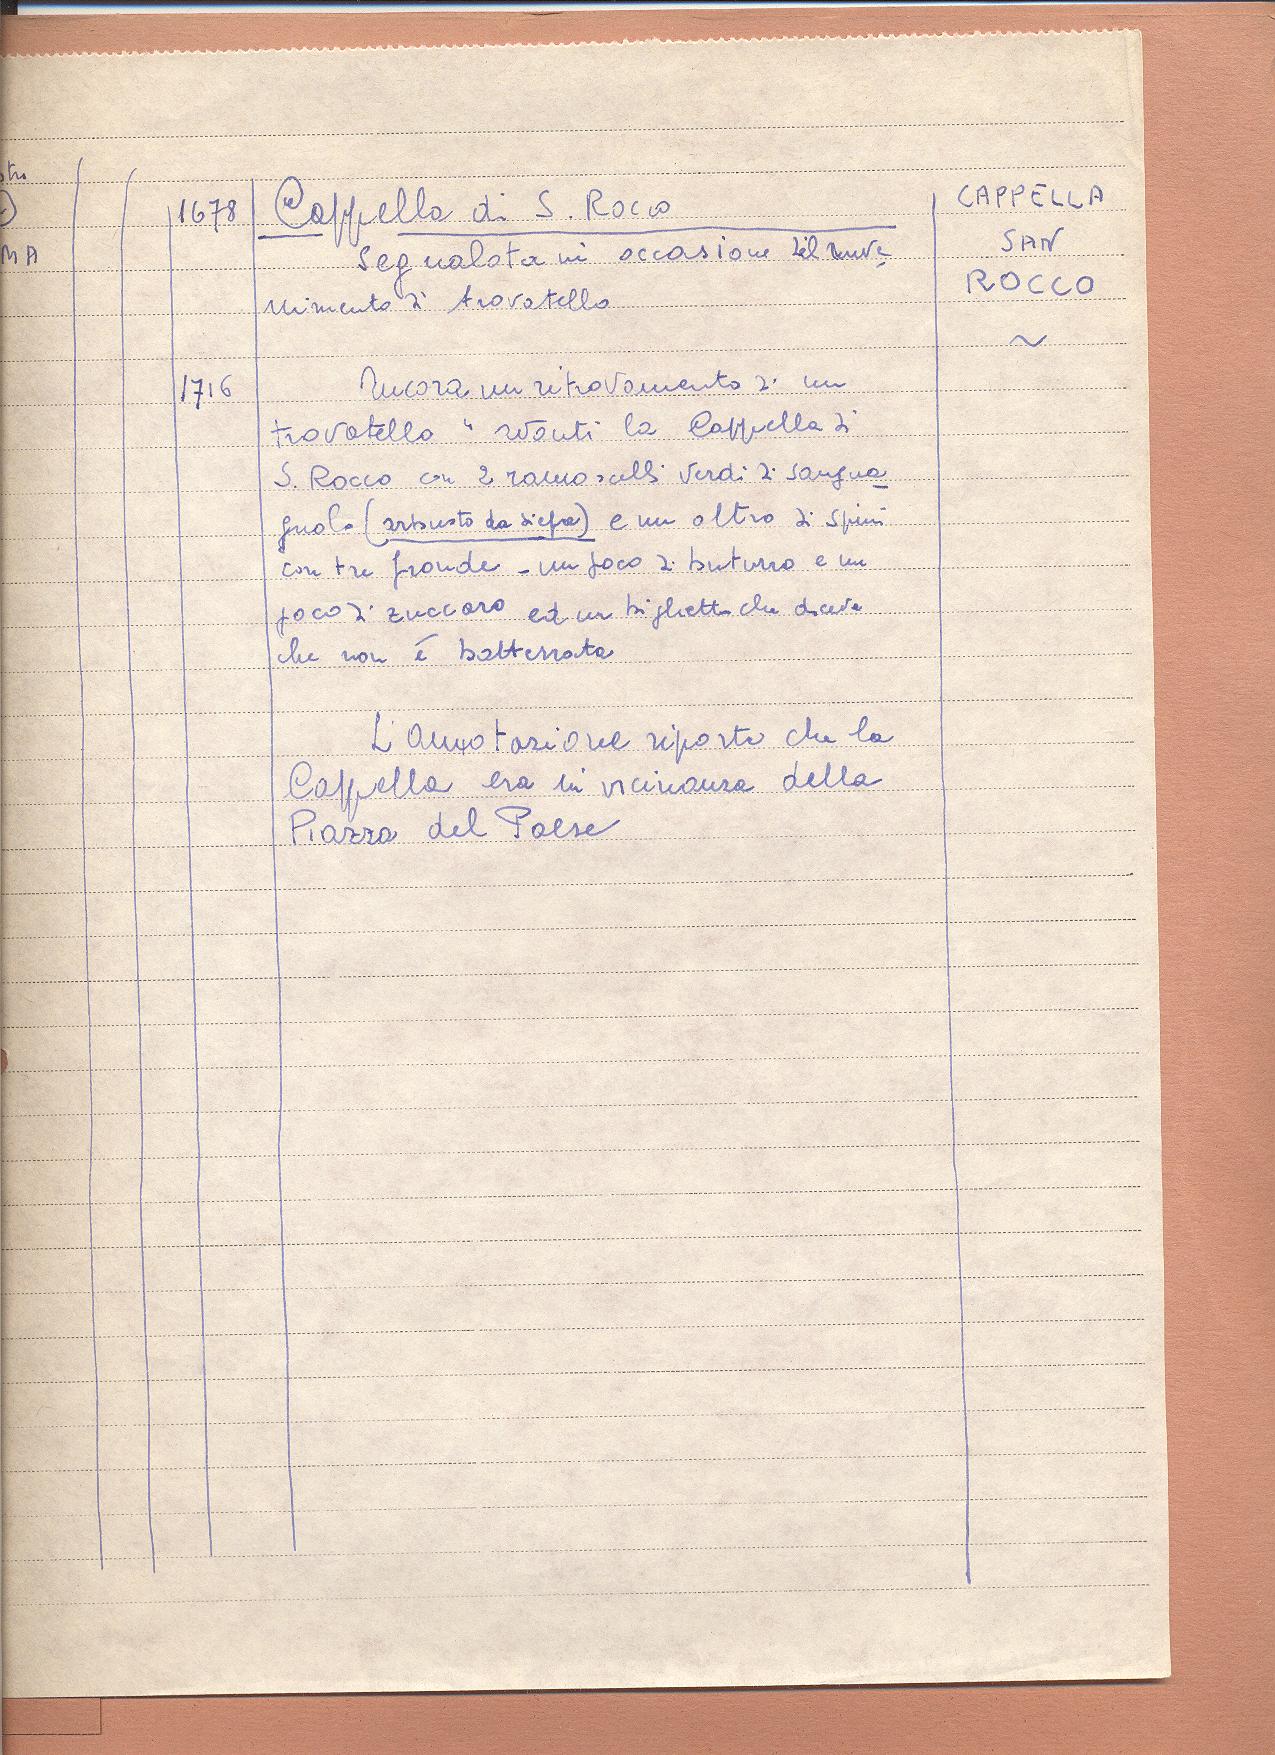 stro
MA
1678 Cappella di S. Rocco
Segnalata in occasione del rinve
nimento di trovatello
1716 Ancora un ritrovamento di un
trovatello " avanti la Cappella di
S. Rocco con 2 ramoscelli verdi di sangua
gnolo (arbusto da siepe) e un altro di spini
con tre fronde - un poco di buturro e un
poco di zuccaro ed un biglietto che diceva
che non é battezzata
L'annotazione riporta che la
Cappella era in vicinanza della
Piazza del Paese
CAPPELLA
SAN
ROCCO
~